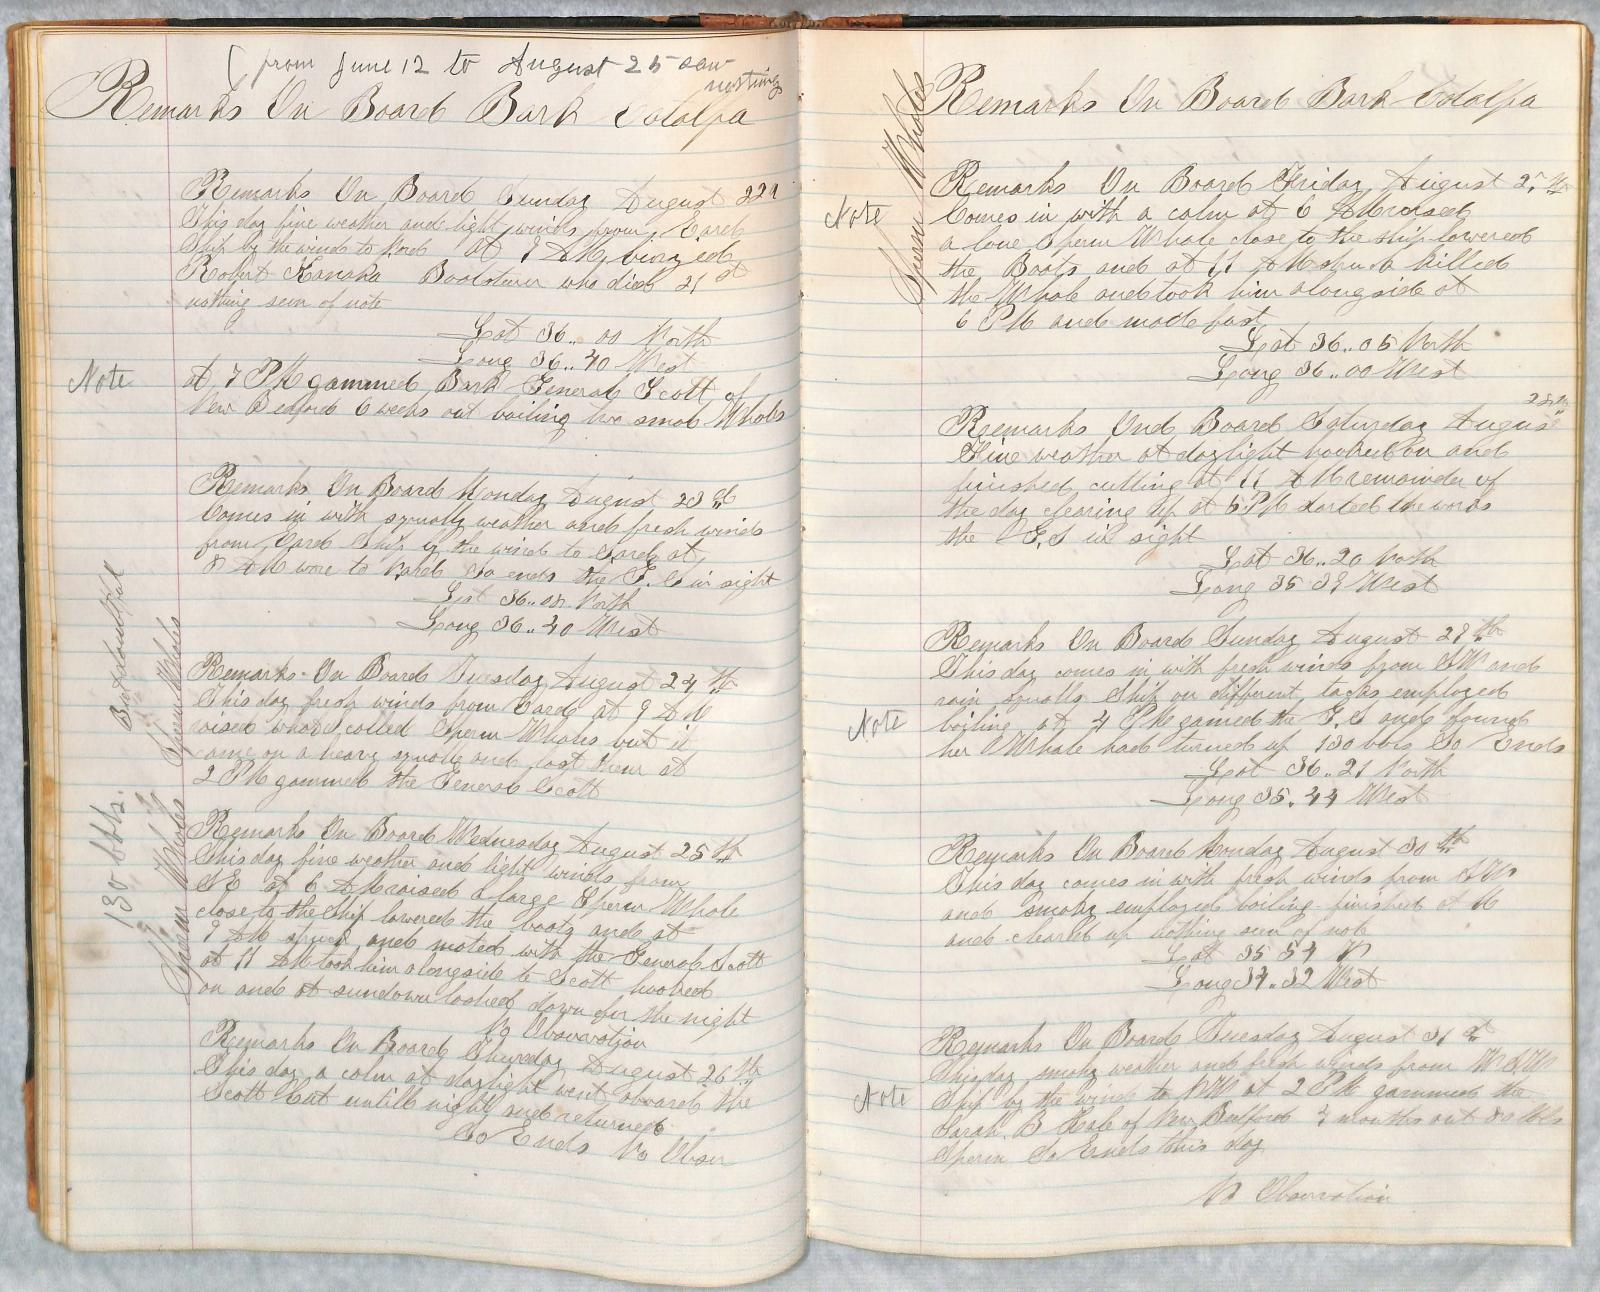 ( from June 12 to August 25 saw
nothing
Remarks On Board Bark Catalpa
Remarks On Board Sunday August 22d
This day fine weather and light winds from Eard
Ship by the wind to Nord at 9 AM buried
Robert Kanaka Boatsteerer who died 21st
nothing seen of note
Lat 36.. 00 North
Long 36.. 40 West
Note
at 7 PM gammed Bark General Scott of
New Bedford 6 weeks out boiling two small Whales
Remarks On Board Monday August 23d
Comes in with squally weather and fresh winds
from Eard Ship by the wind to Eard at
8 AM wore to Nard So ends the G.S in sight
Lat 36.. 08 North
Long 36.. 40 West
But doubtful
Sperm Whales
Remarks On Board Tuesday August 24th
This day fresh winds from Eard at 9 AM
raised what called Sperm Whales but it
came on a heavy squall and lost them at
2 PM gammed the General Scott
130 bbls.
Sperm Whales
Remarks On Board Wednesday August 25th
This day fine weather and light winds from
SE at 6 AM raised a large Sperm Whale
close to the Ship lowered the boats and at
9 AM struck and mated with the General Scott
at 11 AM took him alongside to Scott hooked
on and at sundown lashed down for the night
No Observation
Remarks On Board Thursday August 26th
This day a calm at daylight went aboard the
Scott Cut untill night and returned
So Ends No Obser
Sperm Whales
Remarks On Board Bark Catalpa
Remarks On Board Friday August 27th
Note
Comes in with a calm at 6 AM raised
a lone Sperm Whale close to the ship lowered
the Boats and at 11 AM struck killed
the Whale and took him alongside at
6 PM and made fast
Lat 36.. 05 North
Long 36.. 00 West
28th
Remarks Ond Board Saturday August
Fine weather at daylight hooked on and
finished cutting at 11 AM remainder of
the day clearing up at 5 PM started the works
the G.S in sight
Lat 36.. 20 North
Long 35 39 West
Remarks On Board Sunday August 29th
This day comes in with fresh winds from SW and
rain squalls Ship on different tacks employed
Note
boiling at 4 PM gamed the G.S and found
her Whale had turned up 130 bbls So Ends
Lat 36.. 21 North
Long 35. 44 West
Remarks On Board Monday August 30th
This day comes in with fresh winds from SW
and smoky employed boiling finished at M
and cleared up nothing seen of note
Lat 35 54 N
Long 34.. 32 West
Remarks On Board Tuesday August 31st
This day smoky weather and fresh winds from WSW
Ship by the wind to NW at 2 PM gammed the
Note
Sarah B Hale of New Bedford months out 80 bbls
Sperm So Ends this day
No Observation